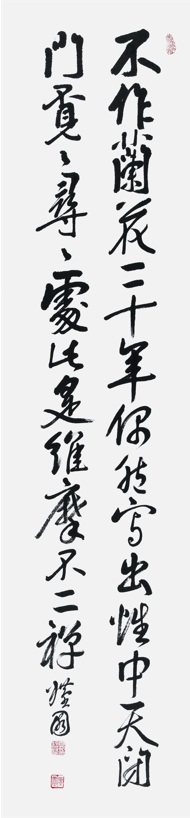 不作蘭花二十年偶然寫出性中天閉
門覓〻尋〻處此是維摩不二禪